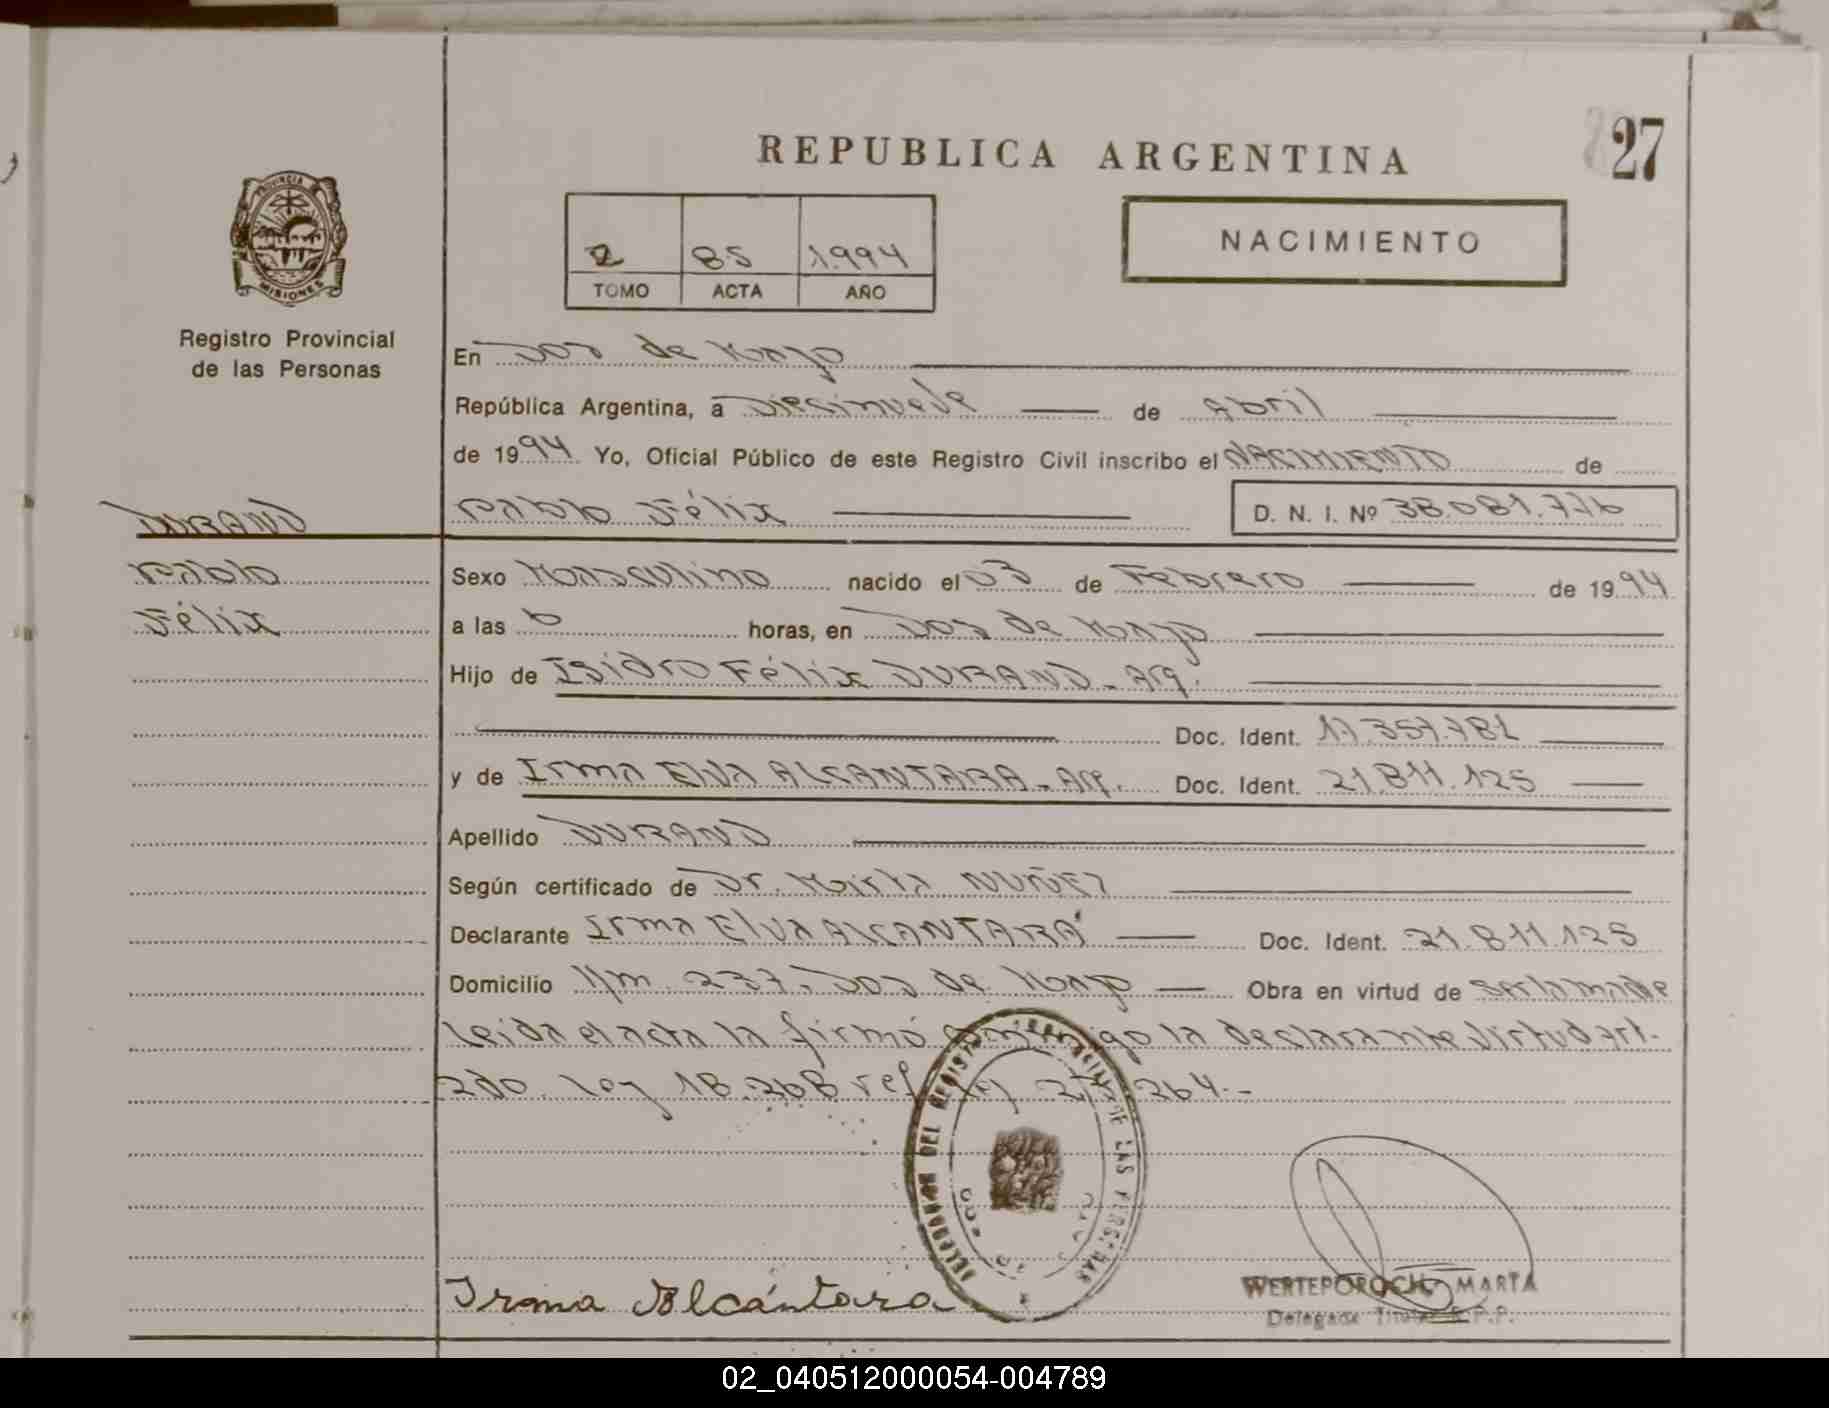 27
REPUBLICA ARGENTINA
NACIMIENTO
2 85 1.994
TOMO ACTA AÑO
PROVINCIA DE
MISIONES
Registro Provincial
de las Personas
En Dos de Mayo
República Argentina, a Diecinueve de Abril
de 1994 Yo, Oficial Público de este Registro Civil inscribo el NACIMIENTO de
DURAND
Pablo Félix D. N. I. Nº 38.081.776
Pablo
Félix
Sexo Masculino nacido el 03 de Febrero de 1994
a las 6 horas, en Dos de Mayo
Hijo de Isidro Félix DURAND - Arg.
Doc. Ident. 17.357.782
y de Irma Elva ALCANTARA - Arg. Doc. Ident. 21.811.125
Apellido DURAND
Según certificado de Dr. Mirta NUÑEZ
Declarante Irma Elva ALCANTARÁ Doc. Ident. 21.811.125
Domicilio Km 237, Dos de Mayo Obra en virtud de ser la madre
Leida el acta la firmó conmigo la declarante virtud art.
2do. Ley 18.268 ref. 264.-
DELEGACION DEL REGISTRO PROVINCIAL DE LAS PERSONAS
DOS DE MAYO
Irma Alcántara
WERTEPOROCH, MARTA
Delegada Titular R.P.P.
02_040512000054-004789